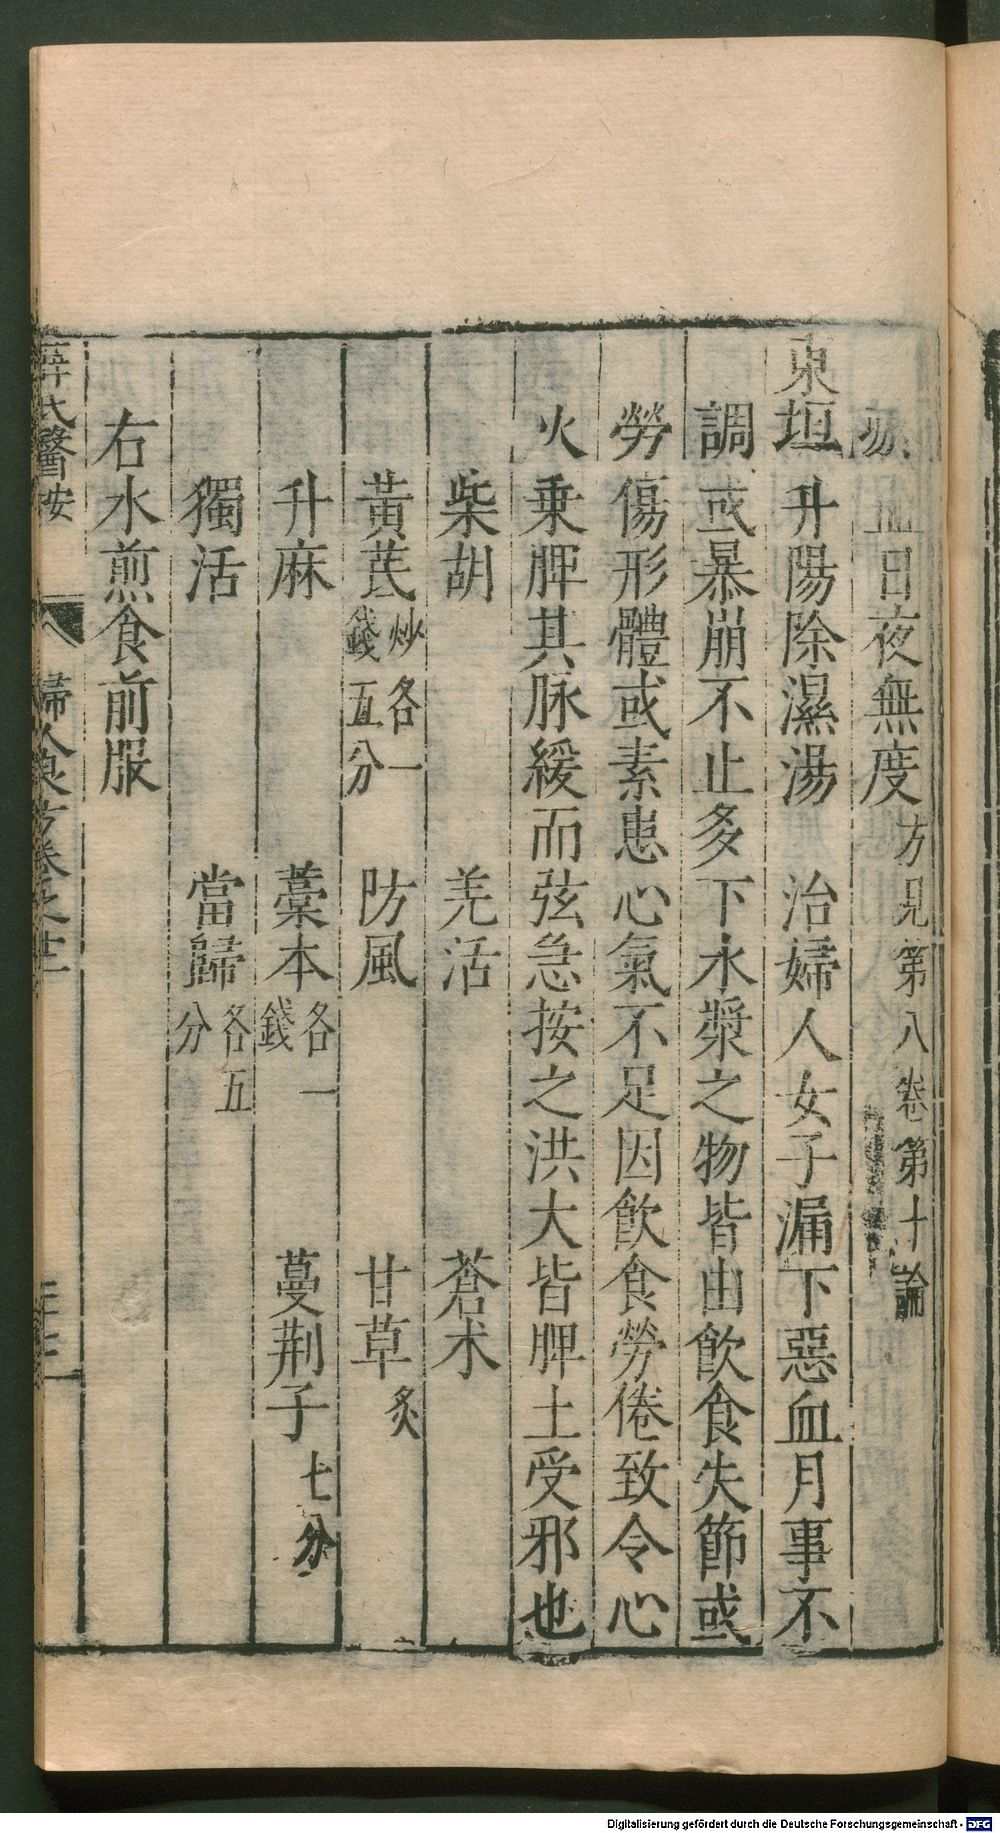 瘀血日夜無度方見第八卷第十論
東垣升陽除濕湯 治婦人女子漏下惡血月事不
調或暴崩不止多下水漿之物皆由飲食失節或
勞傷形體或素患心氣不足因飲食勞倦致令心
火乗脾其脉緩而弦急按之洪大皆脾土受邪也
柴胡 羌活 蒼术
黃芪炒各一錢五分 防風 甘草炙
升麻 藁本各一錢 蔓荆子七分
獨活 當歸各五分
右水煎食前服
薛氏醫按 婦人良方卷之
Digitalisierung gefördert durch die Deutsche Forschungsgemeinschaft - DFG